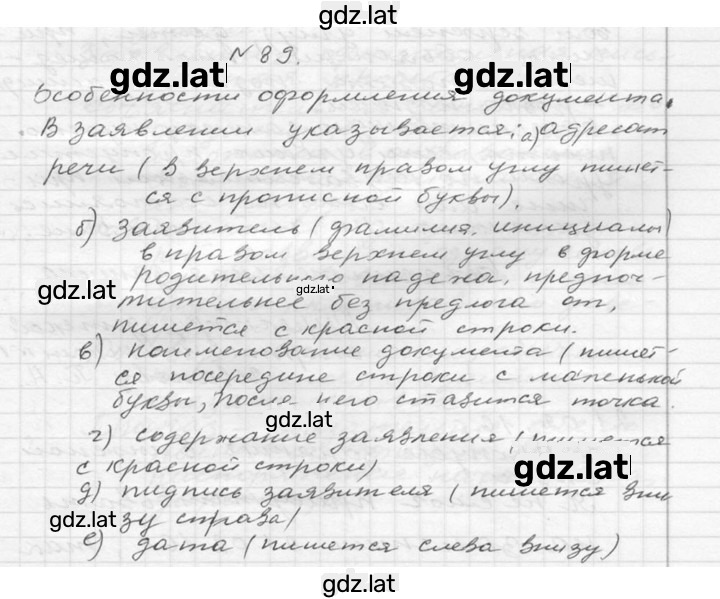 gdz.lat
№ 89.
gdz.lat gdz.lat
Особенности оформления документа.
В заявлении указывается: а) адресат
речи (в верхнем правом углу пишет-
ся с прописной буквы).
б) заявитель (фамилия, инициалы)
в правом верхнем углу в форме
родительного падежа, предпоч-
gdz.lat gdz.lat
тительнее без предлога от,
пишется с красной строки.
в) наименование документа (пишет-
ся посередине строки с маленькой
буквы, после него ставится точка.
gdz.lat
г) содержание заявления (пишется
с красной строки)
gdz.lat
д) пидпись заявителя (пишется вни
зу справа)
gdz.lat
е) дата (пишется слева внизу)
gdz.lat